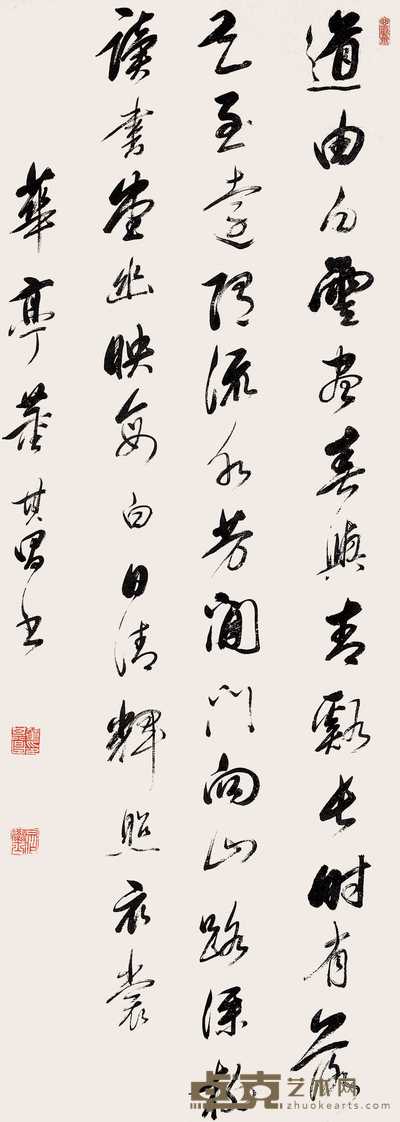 道由白雲盡春與青谿長時有落
花至遠隨流水芳閒門向山路深柳
讀書堂幽映每白日清輝照衣裳
華亭董其昌書
卓克艺术网
zhuokearts.com